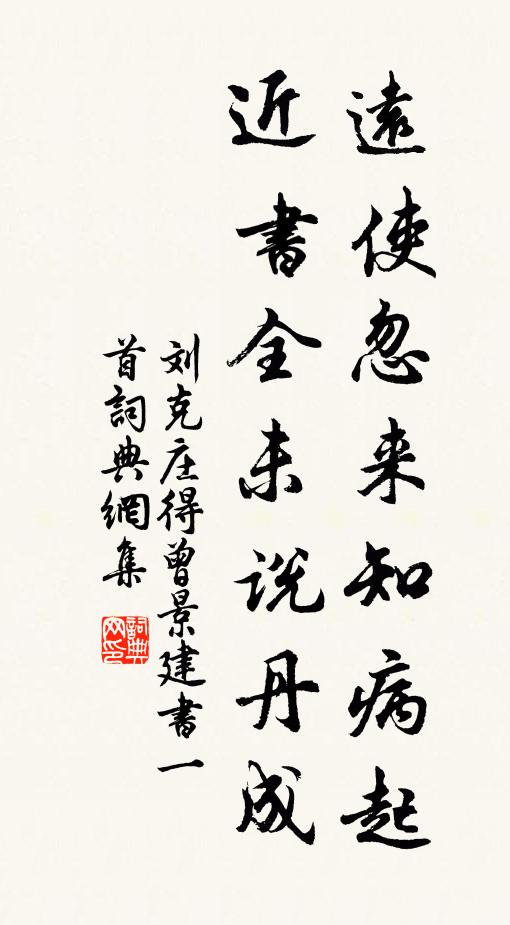 遠使忽来知病起
近書全未説丹成
刘克庄得曾景建書一
首詞典網集
詞典
网印